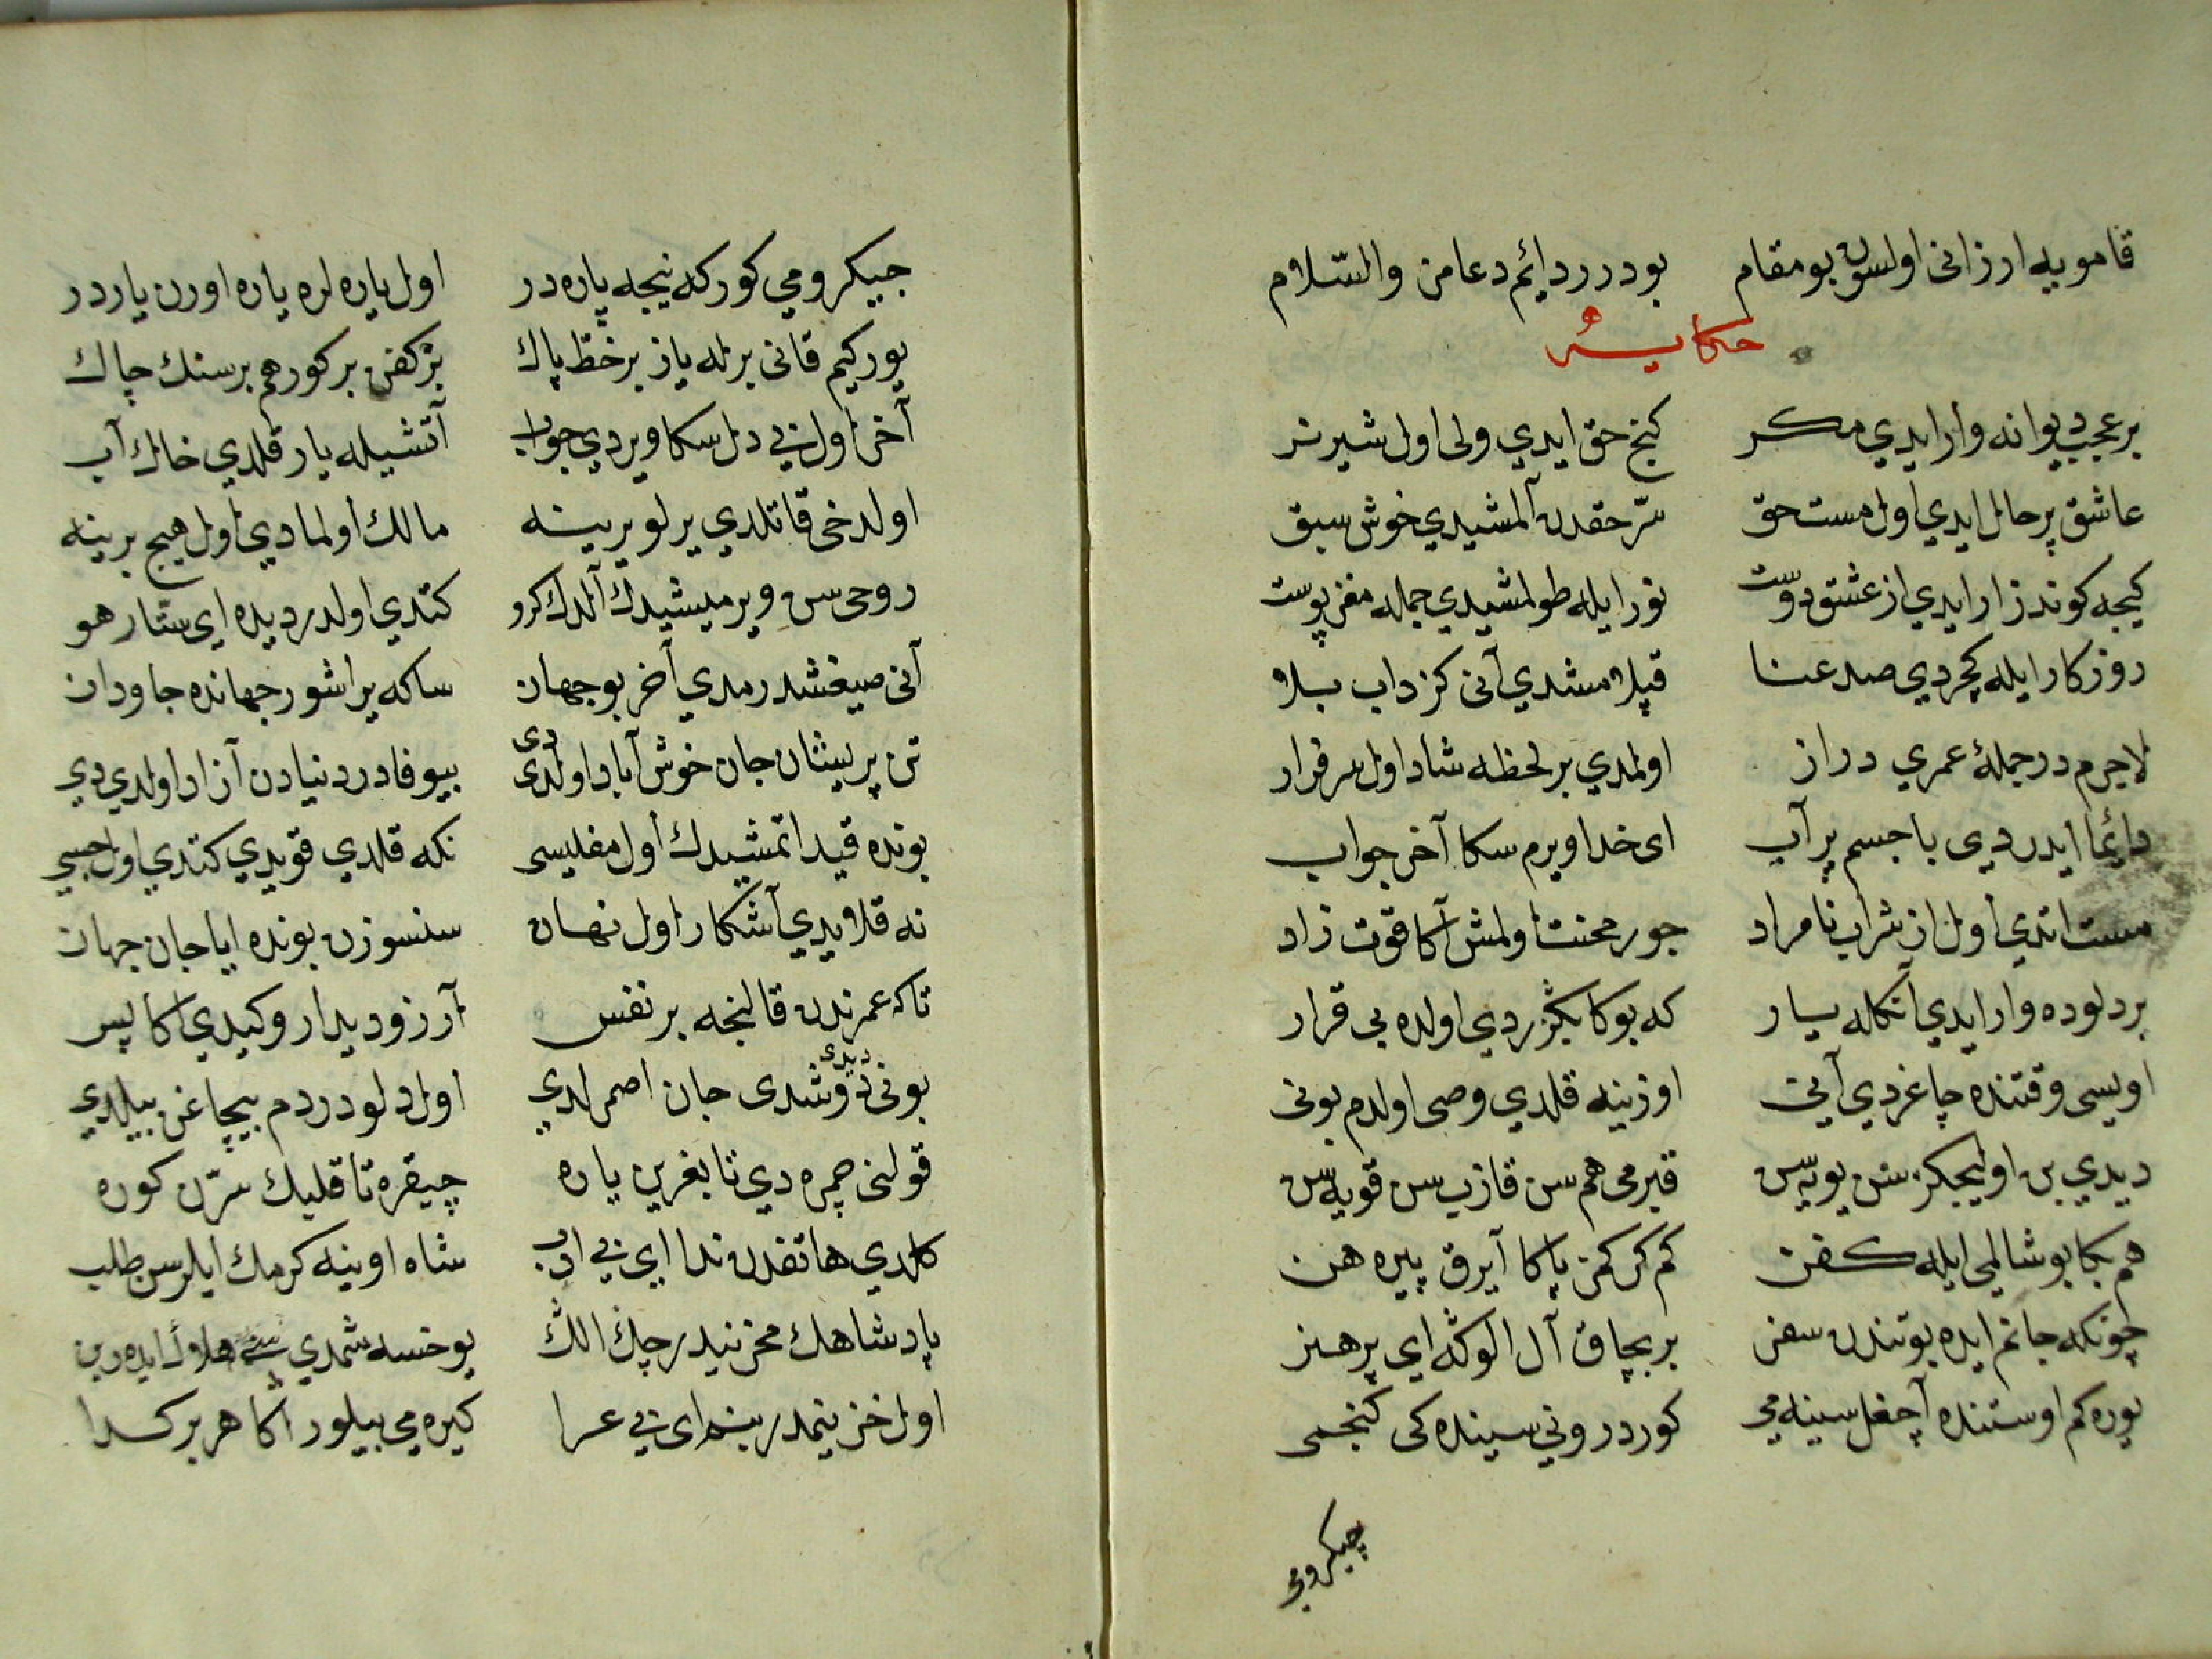 قامویه ارزانی اولسون بو مقام بودرر دایم دعامز والسّلام
حکایه
بر عجب دیوانه وار ایدي مکر کنج حق ایدي ولی اول شیر نر
عاشق پر حال ایدي اول مست حق سرّ حقدن آلمشیدي خوش سبق
کیجه کوندز زار ایدي از عشق دوست نور ایله طولمشیدي جمله مغز پوست
روزکار ایله کچردي صد عنا قپلامشدي آنی کرداب بلا
لاجرم در جملهٔ عمري دراز اولمدي بر لحظه شاد اول سرفراز
دائما ایدردی با جسم پر آب ای خدا ویرم سکا آخر جواب
مست اتدي اول از شراب نامراد جور محنت اولمش آکا قوت زاد
بر دلوده وار ایدي آنکله یسار که بوکا بکزردي اولده بی قرار
اویسی وقتنده چاغردي آنی اوزینه قلدي وصی اولدم بونی
دیدي بن اولیجکز سن یویه‌سن قبرمی هم سن قازب سن قویه‌سن
هم بکا بو شالمی ایله کفن کم کرکمز باکا آیرق پیرهن
چونکه جانم ایده بو تندن سفر بر بچاق آل الوکه ای پر هنر
یوره کم اوستنده آچغل سینه مي کور درونی سینده کی کنجمی
چیکرومی
جیکرومي کور که نیجه یاره در اول یاره لره یاره اورن یاردر
یورکیم قانی برله یاز بر خطّ پاك بر کفن بر کور هم بر سنك چاك
آخر اول بی دل سکا ویردي جواب آتشیله یار قلدي خاك آب
اولدخی قاتلدي یرلو یرینه مالك اولمادي اول هیچ برینه
روحی سن ویرمیشیدك آلدك کرو کتدي اولدر دیده ای ستار هو
آنی صیغشدرمدي آخر بو جهان ساکه یراشور جهانده جاودان
تن پریشان جان خوش آباد اولدی دی بیوفادر دنیادن آزاد اولدي دي
بونده قید اتمشیدك اول مفلسی نکه قلدي قویدي کتدي اول
نه قلایدي آشکار اول نهان سنسوزن بونده ایا جان جهان
تا که عمرندن قالنجه بر نفس آرزو دیدار وکیدي آکا پس
بونی دیدی دوشدی جان اصمرلدي اول دلو دردم بیچاغن بیلدي
قولنی چمره دي تا بغرین یاره چیقره تا قلبك سرّن کوره
کلدي هاتفدن ندا ای بی ادب شاه اوینه کرمك ایلرسن طلب
پادشاهك مخزنیدر چك الك یوخسه شمدي هلاك ایده رین
اول خزینمدر بنم ای بی عرا کیره مي بیلور آکا هر بر کدا